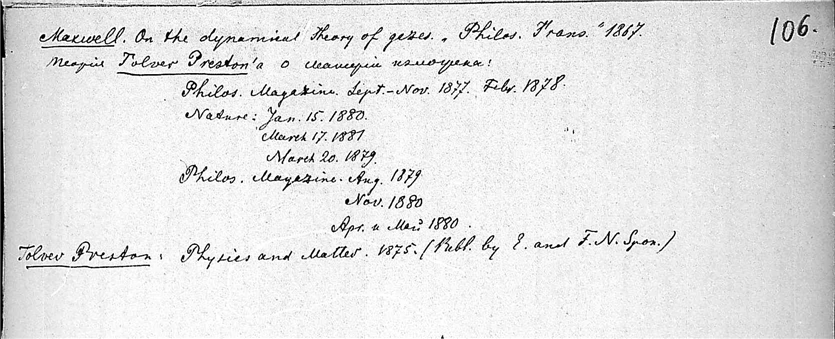 106.
Maxwell. On the dynamical Theory of gazes. „Philos. Trans.“ 1867.
Теорія Tolver Preston'а о матеріи изложена:
Philos. Magazine. Sept.-Nov. 1877. Febr. 1878.
Nature: Jan. 15. 1880.
March 17. 1881
March 20. 1879.
Philos. Magazine. Aug. 1879
Nov. 1880
Apr. и Май 1880.
Tolver Preston: Physics and Matter. 1875. (Publ. by E. and F. N. Spon.)